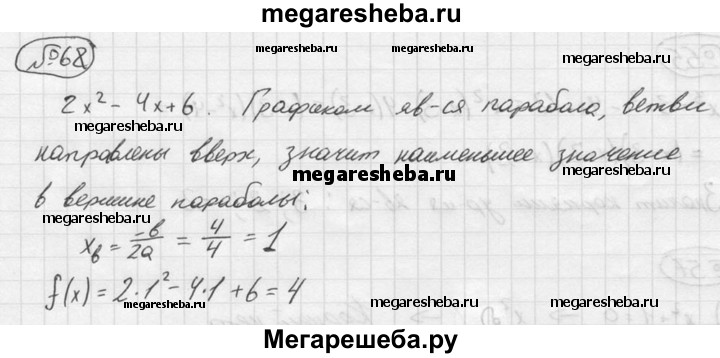 megaresheba.ru
№68
megaresheba.ru megaresheba.ru
megaresheba.ru
2x² - 4x + 6. Графиком яв-ся парабола, ветви
megaresheba.ru megaresheba.ru
направлены вверх, значит наименьшее значение
megaresheba.ru megaresheba.ru
в вершине параболы:
megaresheba.ru megaresheba.ru
xв = -в/2a = 4/4 = 1
f(x) = 2·1² - 4·1 + 6 = 4
megaresheba.ru megaresheba.ru
Мегарешеба.ру